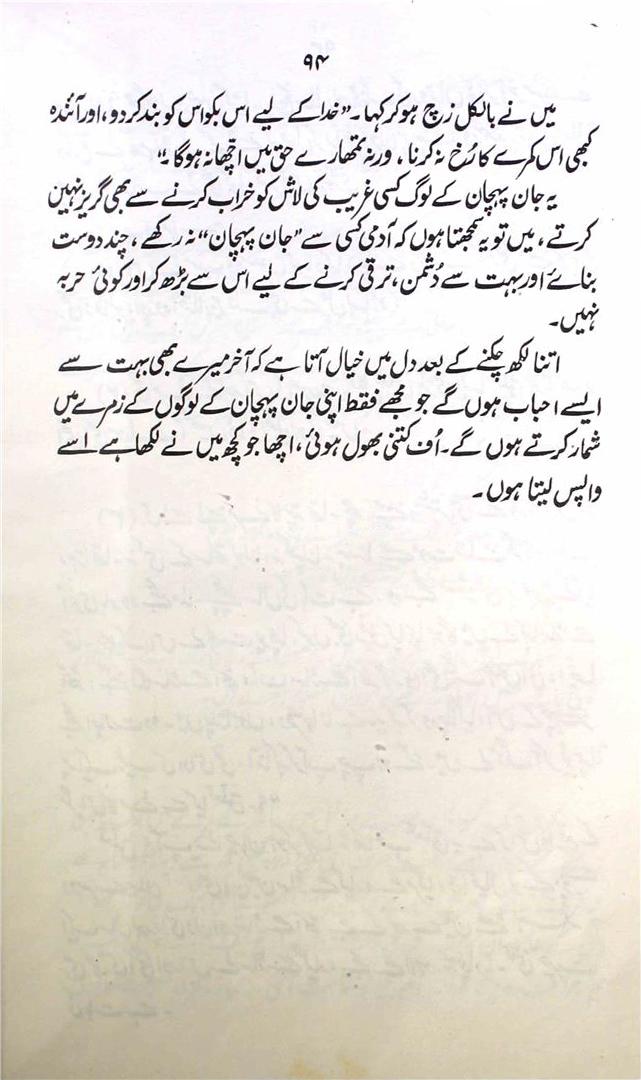 ۹۴
میں نے بالکل زچ ہو کر کہا۔ ”خدا کے لیے اس بکواس کو بند کر دو، اور آئندہ
کبھی اس کمرے کا رُخ نہ کرنا، ورنہ تمھارے حق میں اچھا نہ ہوگا۔“
یہ جان پہچان کے لوگ کسی غریب کی لاش کو خراب کرنے سے بھی گریز نہیں
کرتے، میں تو یہ سمجھتا ہوں کہ آدمی کسی سے ”جان پہچان“ نہ رکھے، چند دوست
بنائے اور بہت سے دُشمن، ترقی کرنے کے لیے اس سے بڑھ کر اور کوئی حربہ
نہیں۔
اتنا لکھ چکنے کے بعد دل میں خیال آتا ہے کہ آخر میرے بھی بہت سے
ایسے احباب ہوں گے جو مجھے فقط اپنی جان پہچان کے لوگوں کے زمرے میں
شمار کرتے ہوں گے۔ اُف کتنی بھول ہوئی، اچھا جو کچھ میں نے لکھا ہے اسے
واپس لیتا ہوں۔